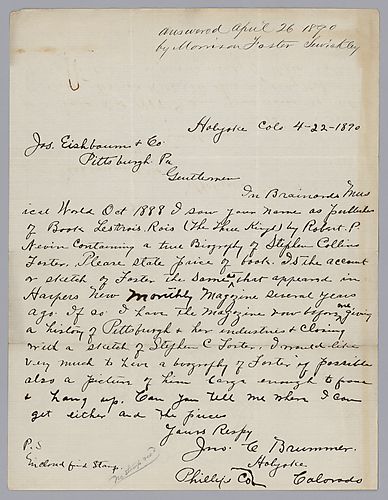 answered April 26 1890
by Morrison Foster Sewickley
Holyoke Colo 4-22-1890
Jos. Eishbaum & Co
Pittsburgh Pa
Gentlemen
In Brainards Mus
ical World Oct 1888 I saw your name as publisher
of Book Lestrois Rois (The Three Kings) by Robert. P.
Nevin Containing a true Biography of Stephen Collins
Foster. Please state price of book. Is the account
or sketch of Foster the same as that appeared in
Harpers New Monthly Magazine several years
ago. If so I have the Magazine now before me giving
a history of Pittsburgh & her industries & Closing
with a sketch of Stephen C Foster. I would like
very much to have a biography of Foster if possible
also a picture of him large enough to frame
& hang up. Can you tell me where I can
get either and the prices
Yours Respy
Jno. C Brummer.
Holyoke
Phillips Co Colorado
P.S
Enclosed find Stamp.